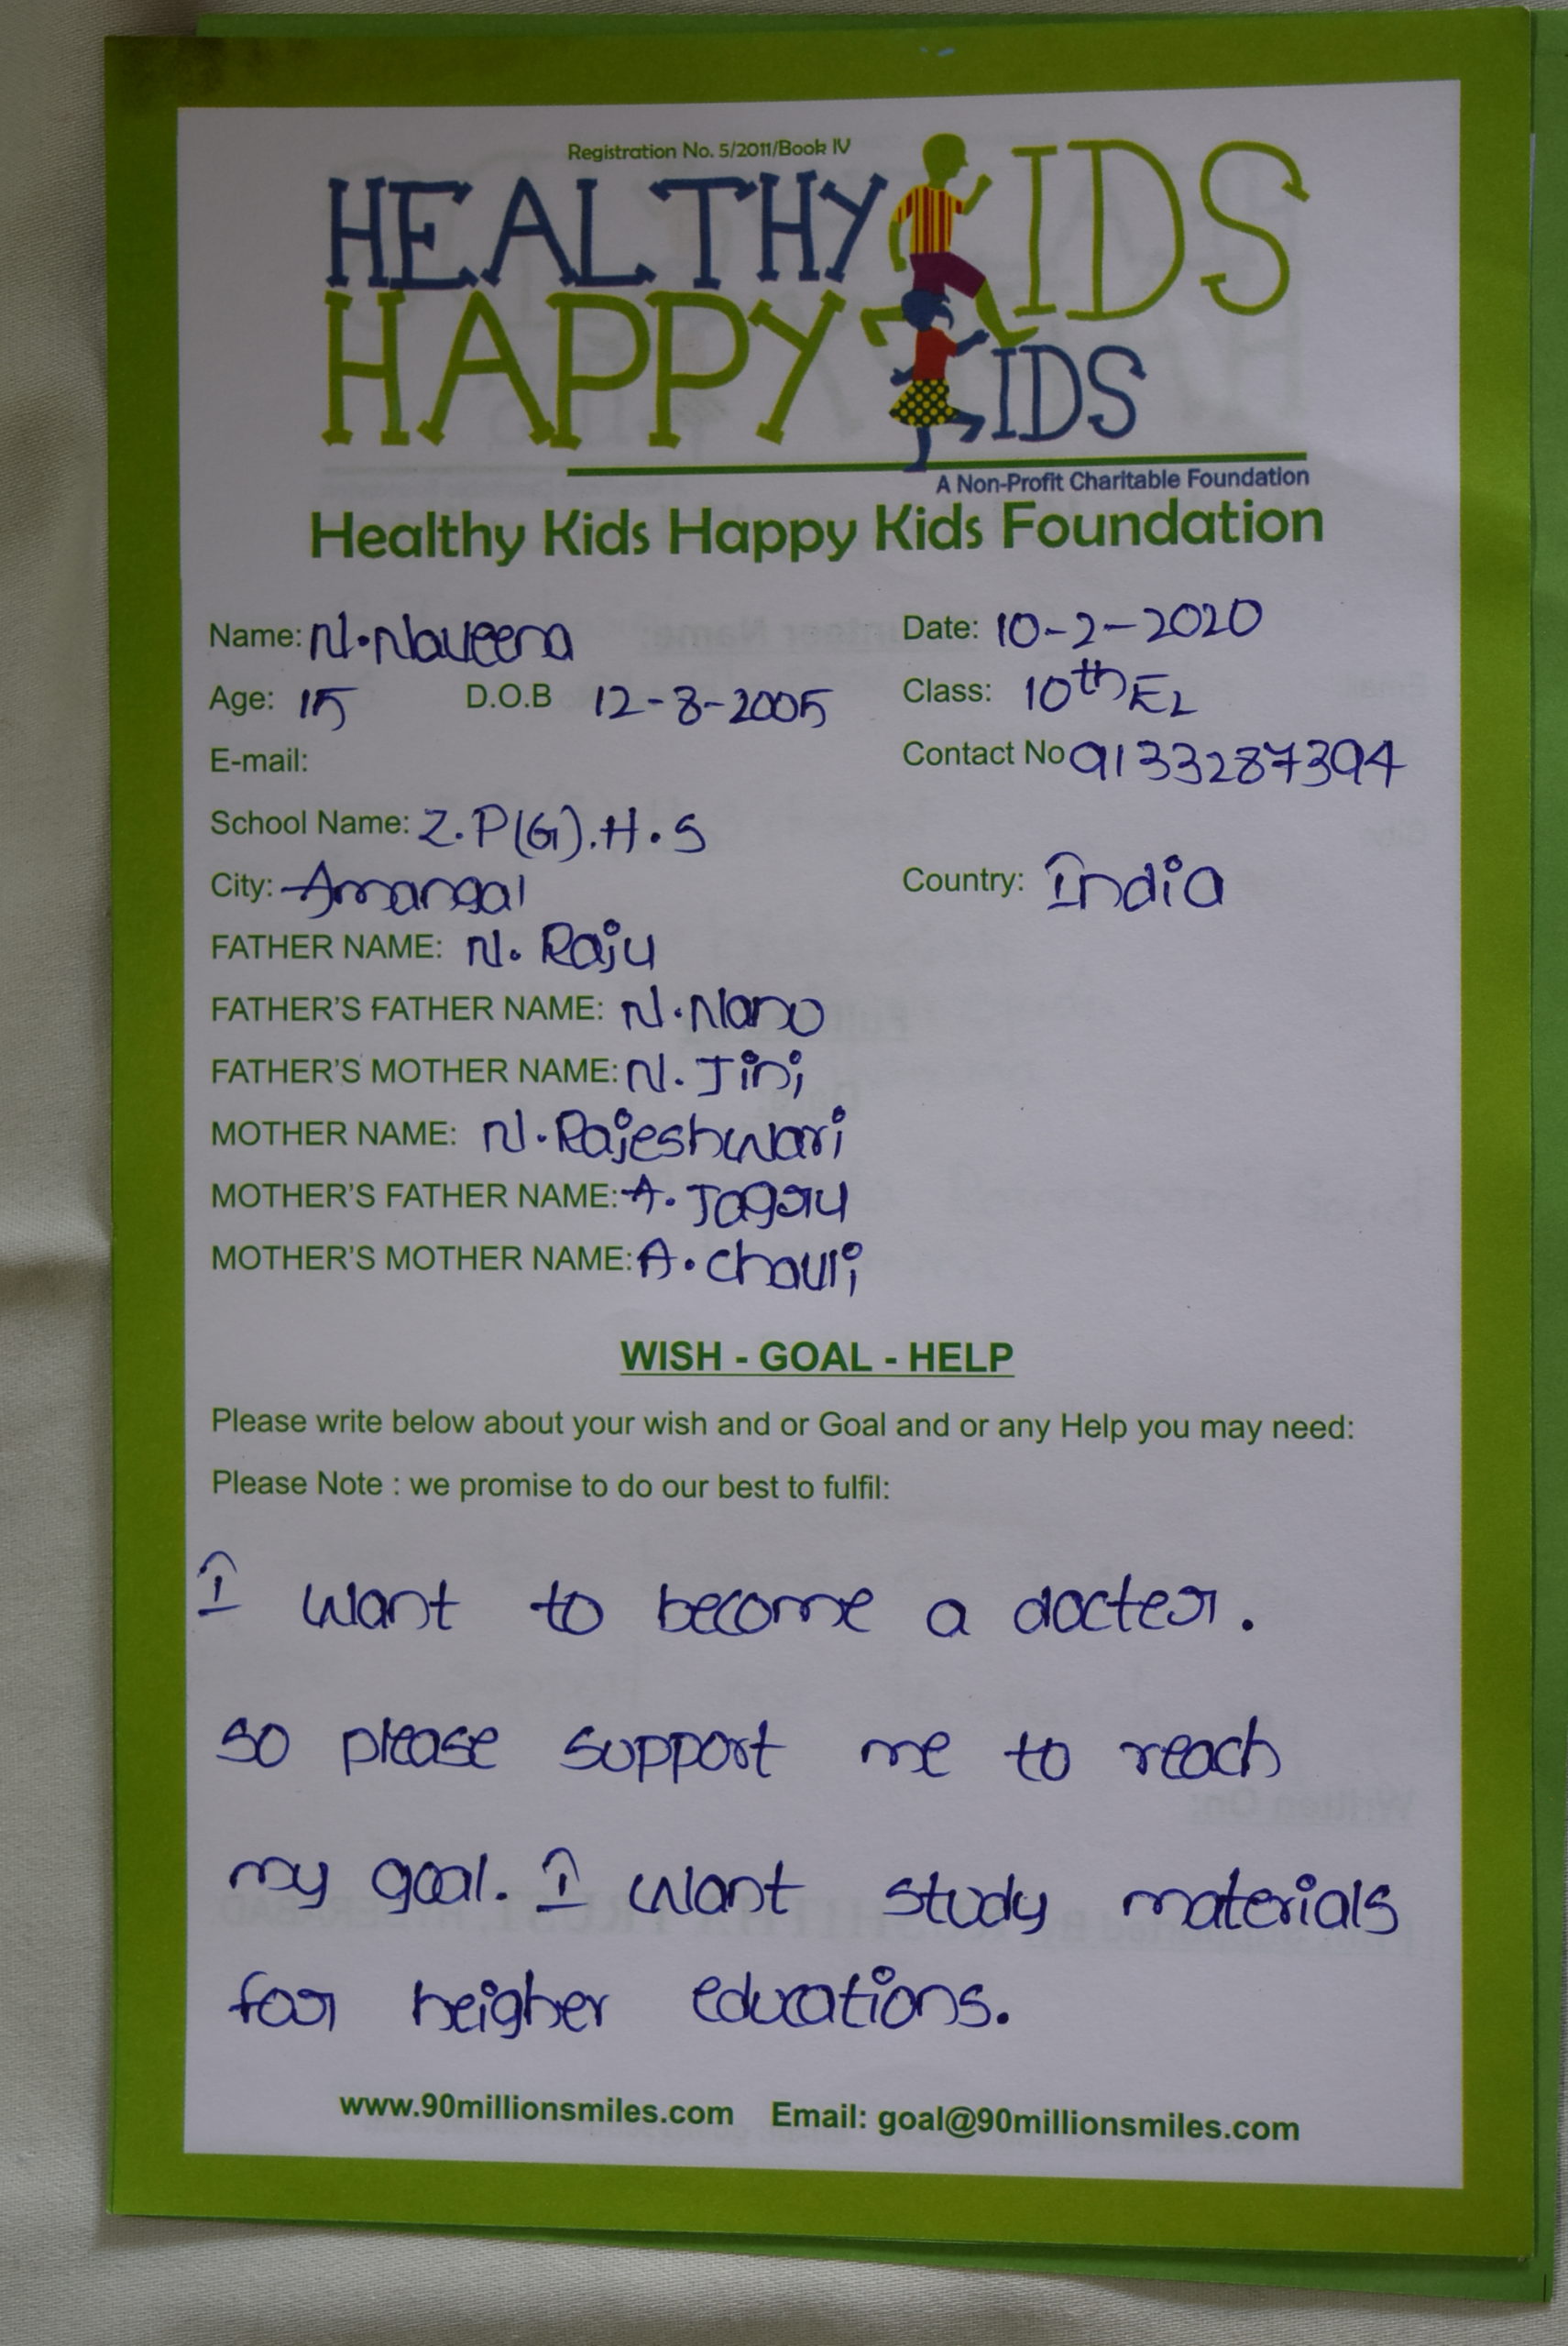 Registration No. 5/2011/Book IV
HEALTHY KIDS
HAPPY KIDS
A Non-Profit Charitable Foundation
Healthy Kids Happy Kids Foundation
Name: N.Naveena Date: 10-2-2020
Age: 15 D.O.B 12-8-2005 Class: 10th EL
E-mail: Contact No 9133287394
School Name: Z.P(G).H.S
City: Amangal Country: India
FATHER NAME: N. Raju
FATHER'S FATHER NAME: N.Nano
FATHER'S MOTHER NAME: N. Jini
MOTHER NAME: N.Rajeshwari
MOTHER'S FATHER NAME: A. Jagru
MOTHER'S MOTHER NAME: A. chauli
WISH - GOAL - HELP
Please write below about your wish and or Goal and or any Help you may need:
Please Note : we promise to do our best to fulfil:
I want to become a docter.
so please support me to reach
my goal. I want study materials
for heigher educations.
www.90millionsmiles.com Email: goal@90millionsmiles.com